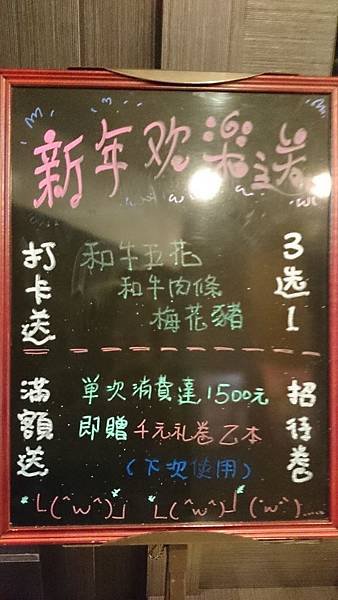 新年欢樂送
打卡送
和牛五花
和牛肉條
梅花豬
3选1
滿額送
單次消費達1500元
即贈千元礼卷乙本
(下次使用)
招待卷
L(^w^)」 L(^w^)」(^w^)......